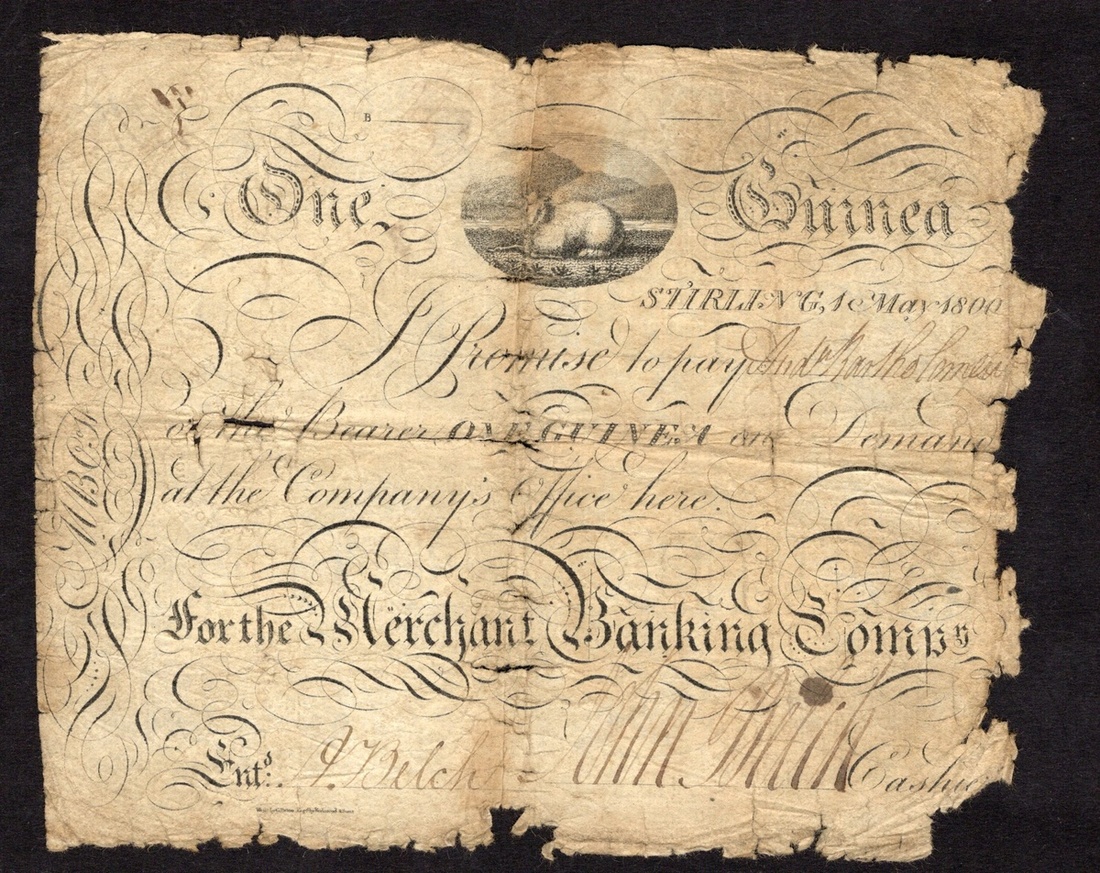 B
One Guinea
STIRLING, 1 May 1800
I Promise to pay Andw Bartholomew
or the Bearer ONE GUINEA on Deman
at the Company's Office here.
For the Merchant Banking Compy
Entd. J Belch Cashie
MBCo